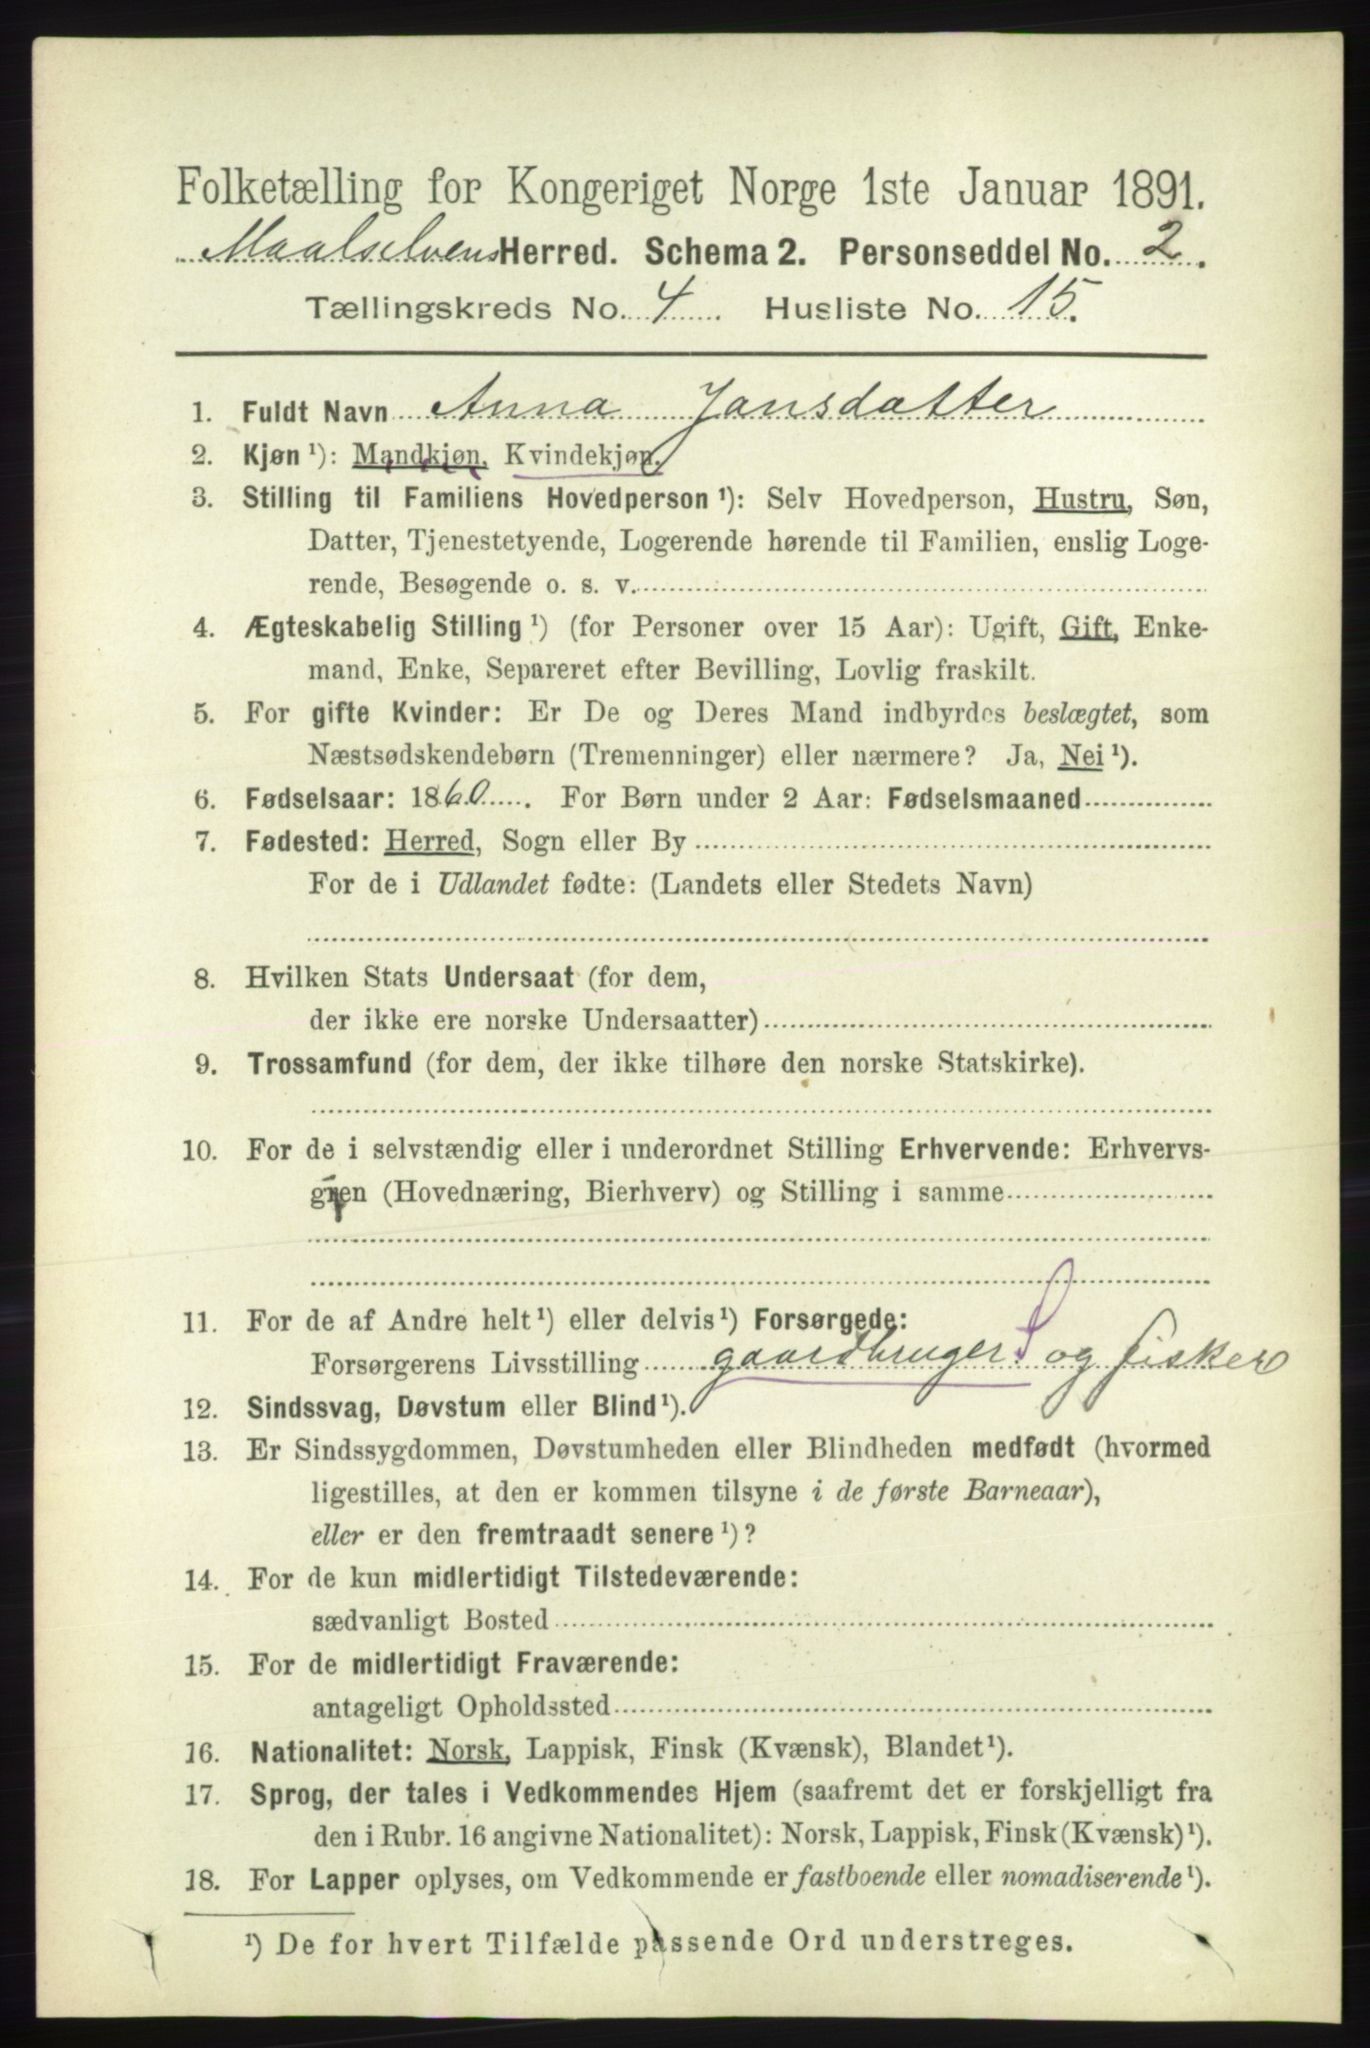 Folketælling for Kongeriget Norge 1ste Januar 1891.
Maalselvens Herred. Schema 2. Personseddel No. 2.
Tællingskreds No. 4. Husliste No. 15.
1. Fuldt Navn Anna Jansdatter
2. Kjøn ¹): Mandkjøn, Kvindekjøn.
3. Stilling til Familiens Hovedperson ¹): Selv Hovedperson, Hustru, Søn,
Datter, Tjenestetyende, Logerende hørende til Familien, enslig Loge-
rende, Besøgende o. s. v.
4. Ægteskabelig Stilling ¹) (for Personer over 15 Aar): Ugift, Gift, Enke-
mand, Enke, Separeret efter Bevilling, Lovlig fraskilt.
5. For gifte Kvinder: Er De og Deres Mand indbyrdes beslægtet, som
Næstsødskendebørn (Tremenninger) eller nærmere? Ja, Nei ¹).
6. Fødselsaar: 1860. For Børn under 2 Aar: Fødselsmaaned
7. Fødested: Herred, Sogn eller By
For de i Udlandet fødte: (Landets eller Stedets Navn)
8. Hvilken Stats Undersaat (for dem,
der ikke ere norske Undersaatter)
9. Trossamfund (for dem, der ikke tilhøre den norske Statskirke).
10. For de i selvstændig eller i underordnet Stilling Erhvervende: Erhvervs-
gren (Hovednæring, Bierhverv) og Stilling i samme
11. For de af Andre helt ¹) eller delvis ¹) Forsørgede:
Forsørgerens Livsstilling gaardbruger S og fisker
12. Sindssvag, Døvstum eller Blind ¹).
13. Er Sindssygdommen, Døvstumheden eller Blindheden medfødt (hvormed
ligestilles, at den er kommen tilsyne i de første Barneaar),
eller er den fremtraadt senere ¹)?
14. For de kun midlertidigt Tilstedeværende:
sædvanligt Bosted
15. For de midlertidigt Fraværende:
antageligt Opholdssted
16. Nationalitet: Norsk, Lappisk, Finsk (Kvænsk), Blandet ¹).
17. Sprog, der tales i Vedkommendes Hjem (saafremt det er forskjelligt fra
den i Rubr. 16 angivne Nationalitet): Norsk, Lappisk, Finsk (Kvænsk) ¹).
18. For Lapper oplyses, om Vedkommende er fastboende eller nomadiserende ¹).
¹) De for hvert Tilfælde passende Ord understreges.